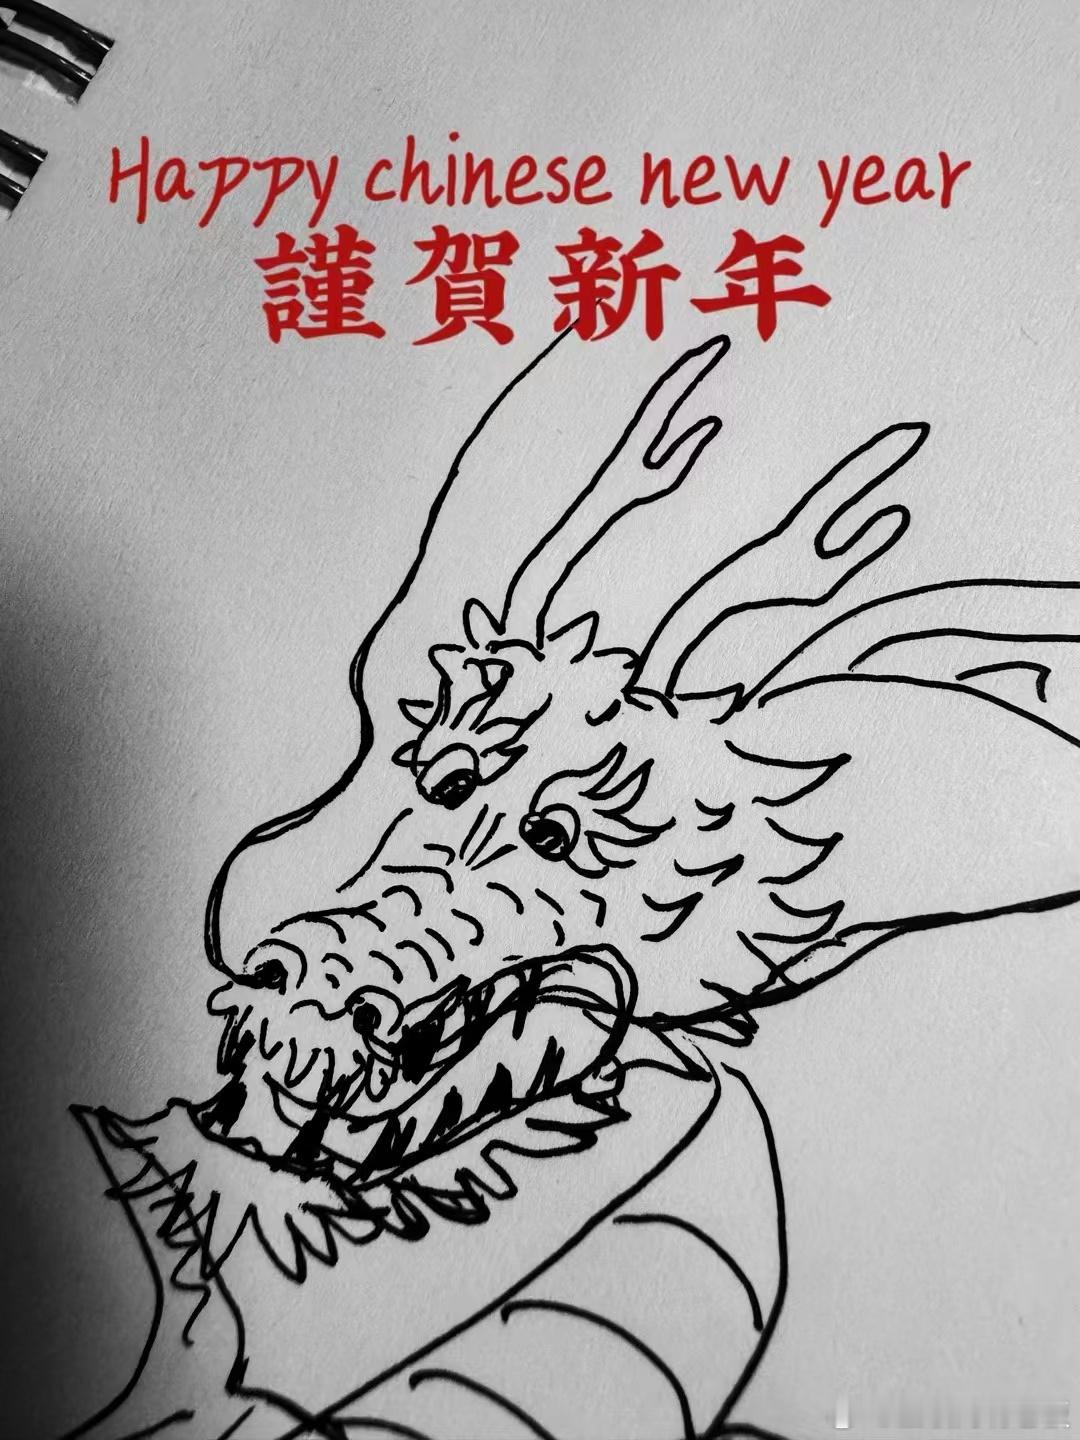 Happy chinese new year
謹賀新年